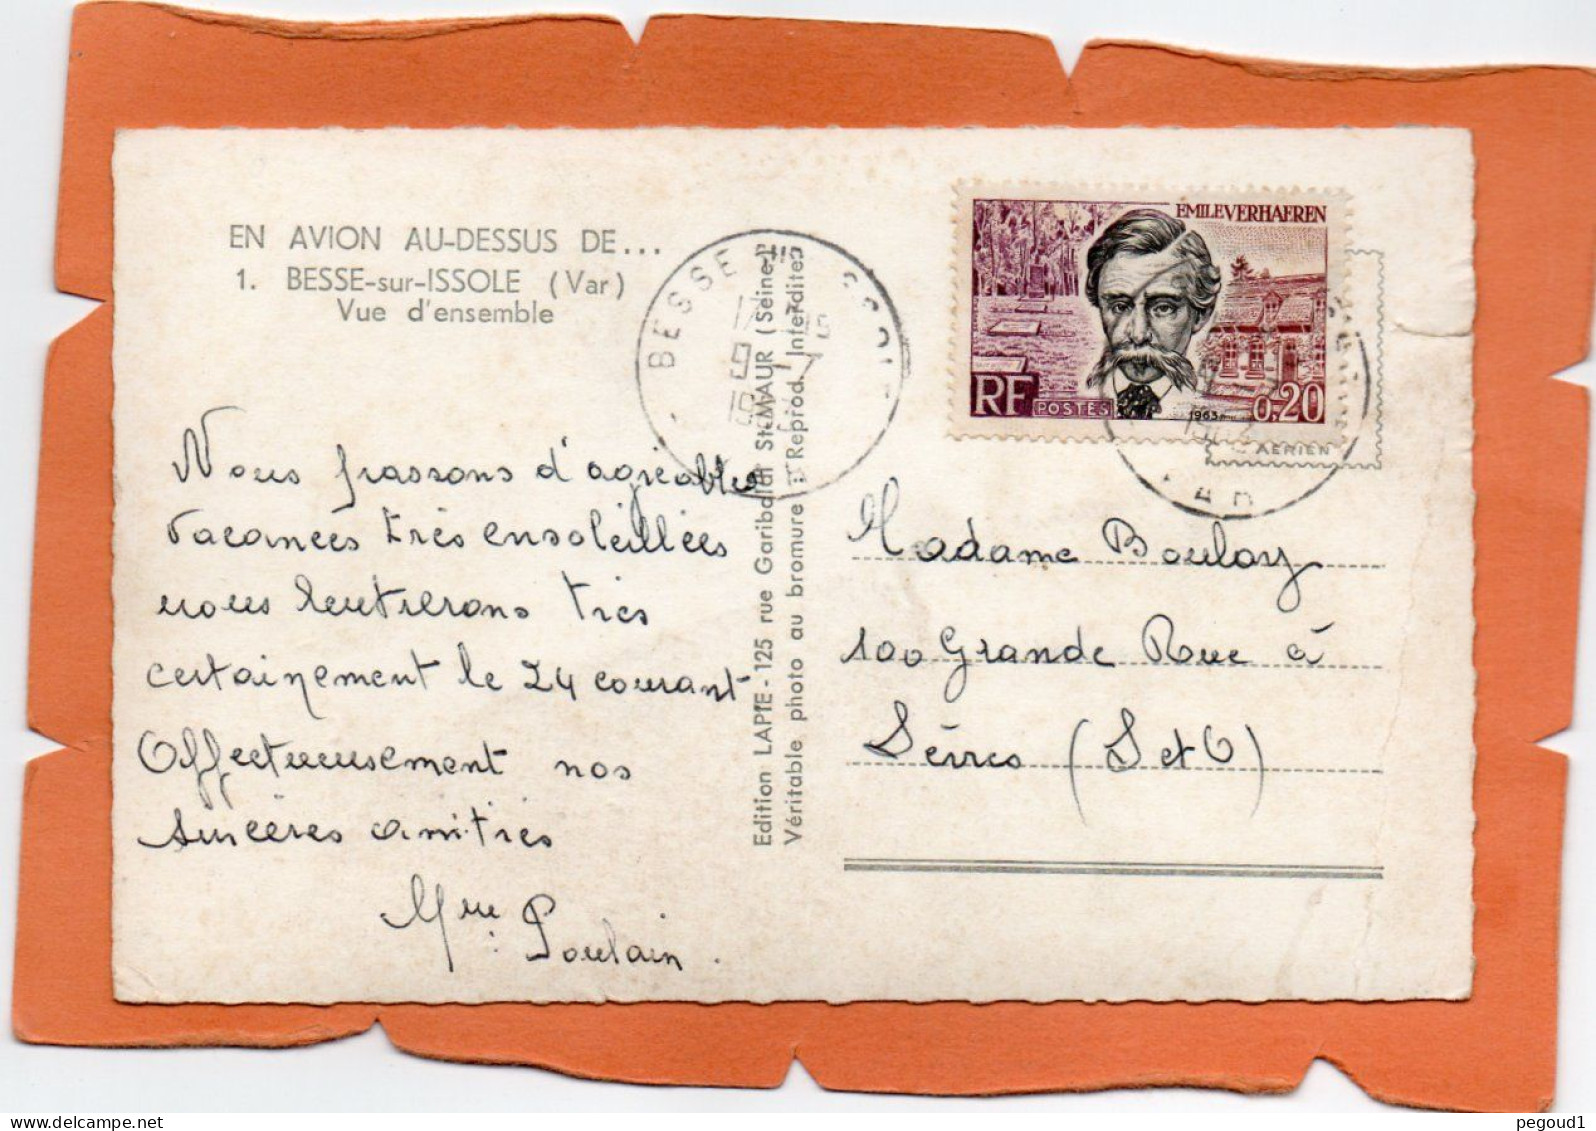 EN AVION AU-DESSUS DE...
1. BESSE-sur-ISSOLE (Var)
Vue d'ensemble
Nous passons d'agréables
vacances très ensoleillées
nous rentrerons très
certainement le 24 courant
Affectueusement nos
sincères amitiés
Mme Poulain.
Edition LAPIE - 125 rue Garibaldi St-MAUR (Seine)
Véritable photo au bromure - Reprod. Interdite
BESSE
EMILE VERHAEREN
RF
POSTES
1963
0,20
AERIEN
VAR
Madame Boulay
100 Grande Rue à
Sèvres (S et O)
pegoud1